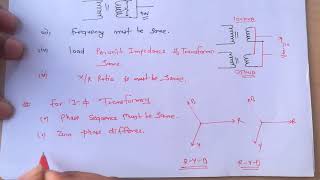 iii, frequency must be same.
100KVA
(iv) Load Per unit Impedance of Transformer
Same.
(v) X/R Ratio is must be same.
for 3-ϕ Transformer
(i) Phase Sequence Must be Same.
(ii) Zero phase differece.
R
Y
R-Y-B
R
Y
R-Y-B